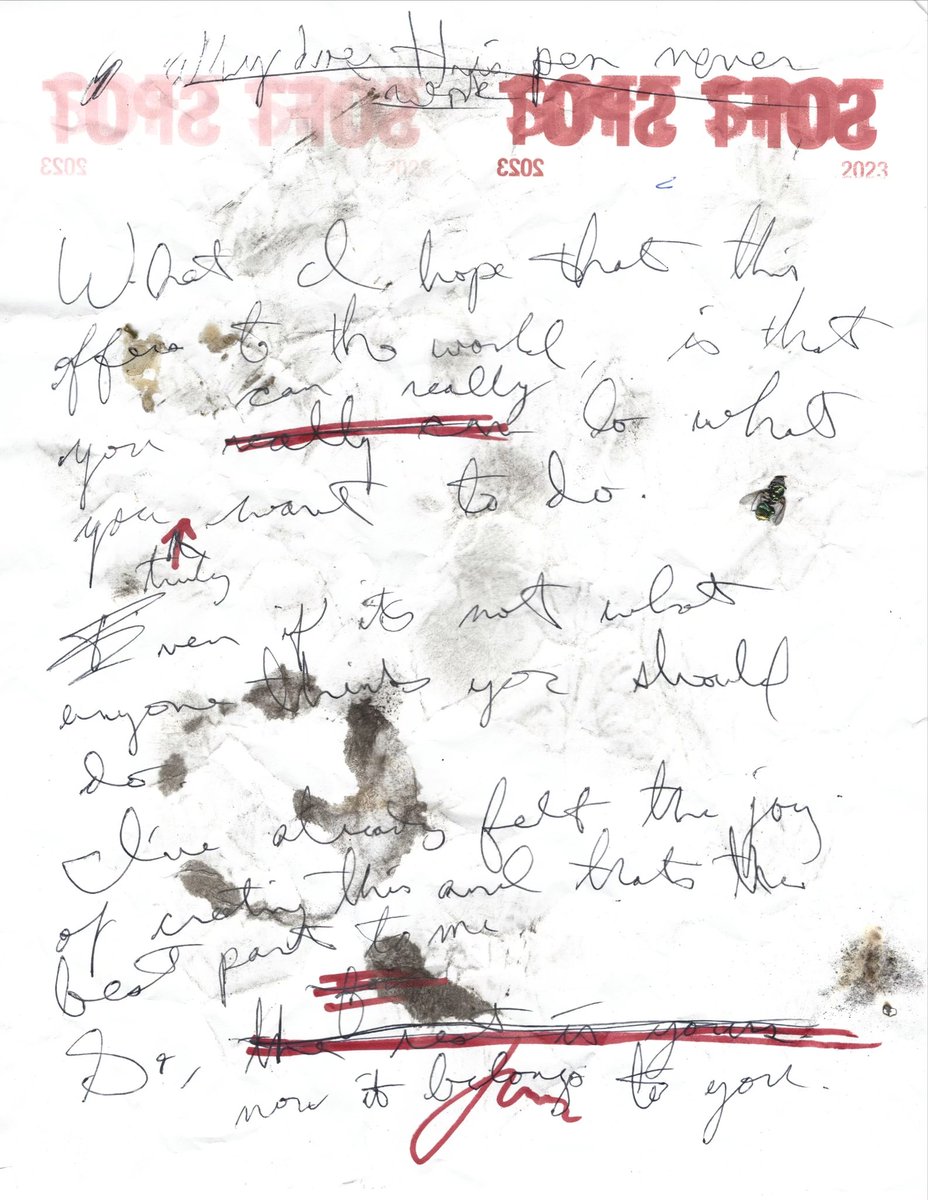 this pen never
work
SOFT SPOT SOFT SPOT
2023 2023 2023 2023
What I hope that this
offers to the world, is that
can really
you really can do what
you want to do.
truly
Even if its not what
anyone thinks you should
do
I've already felt the joy
of creating this and thats the
best part to me
So, the rest is yours
now it belongs to you.